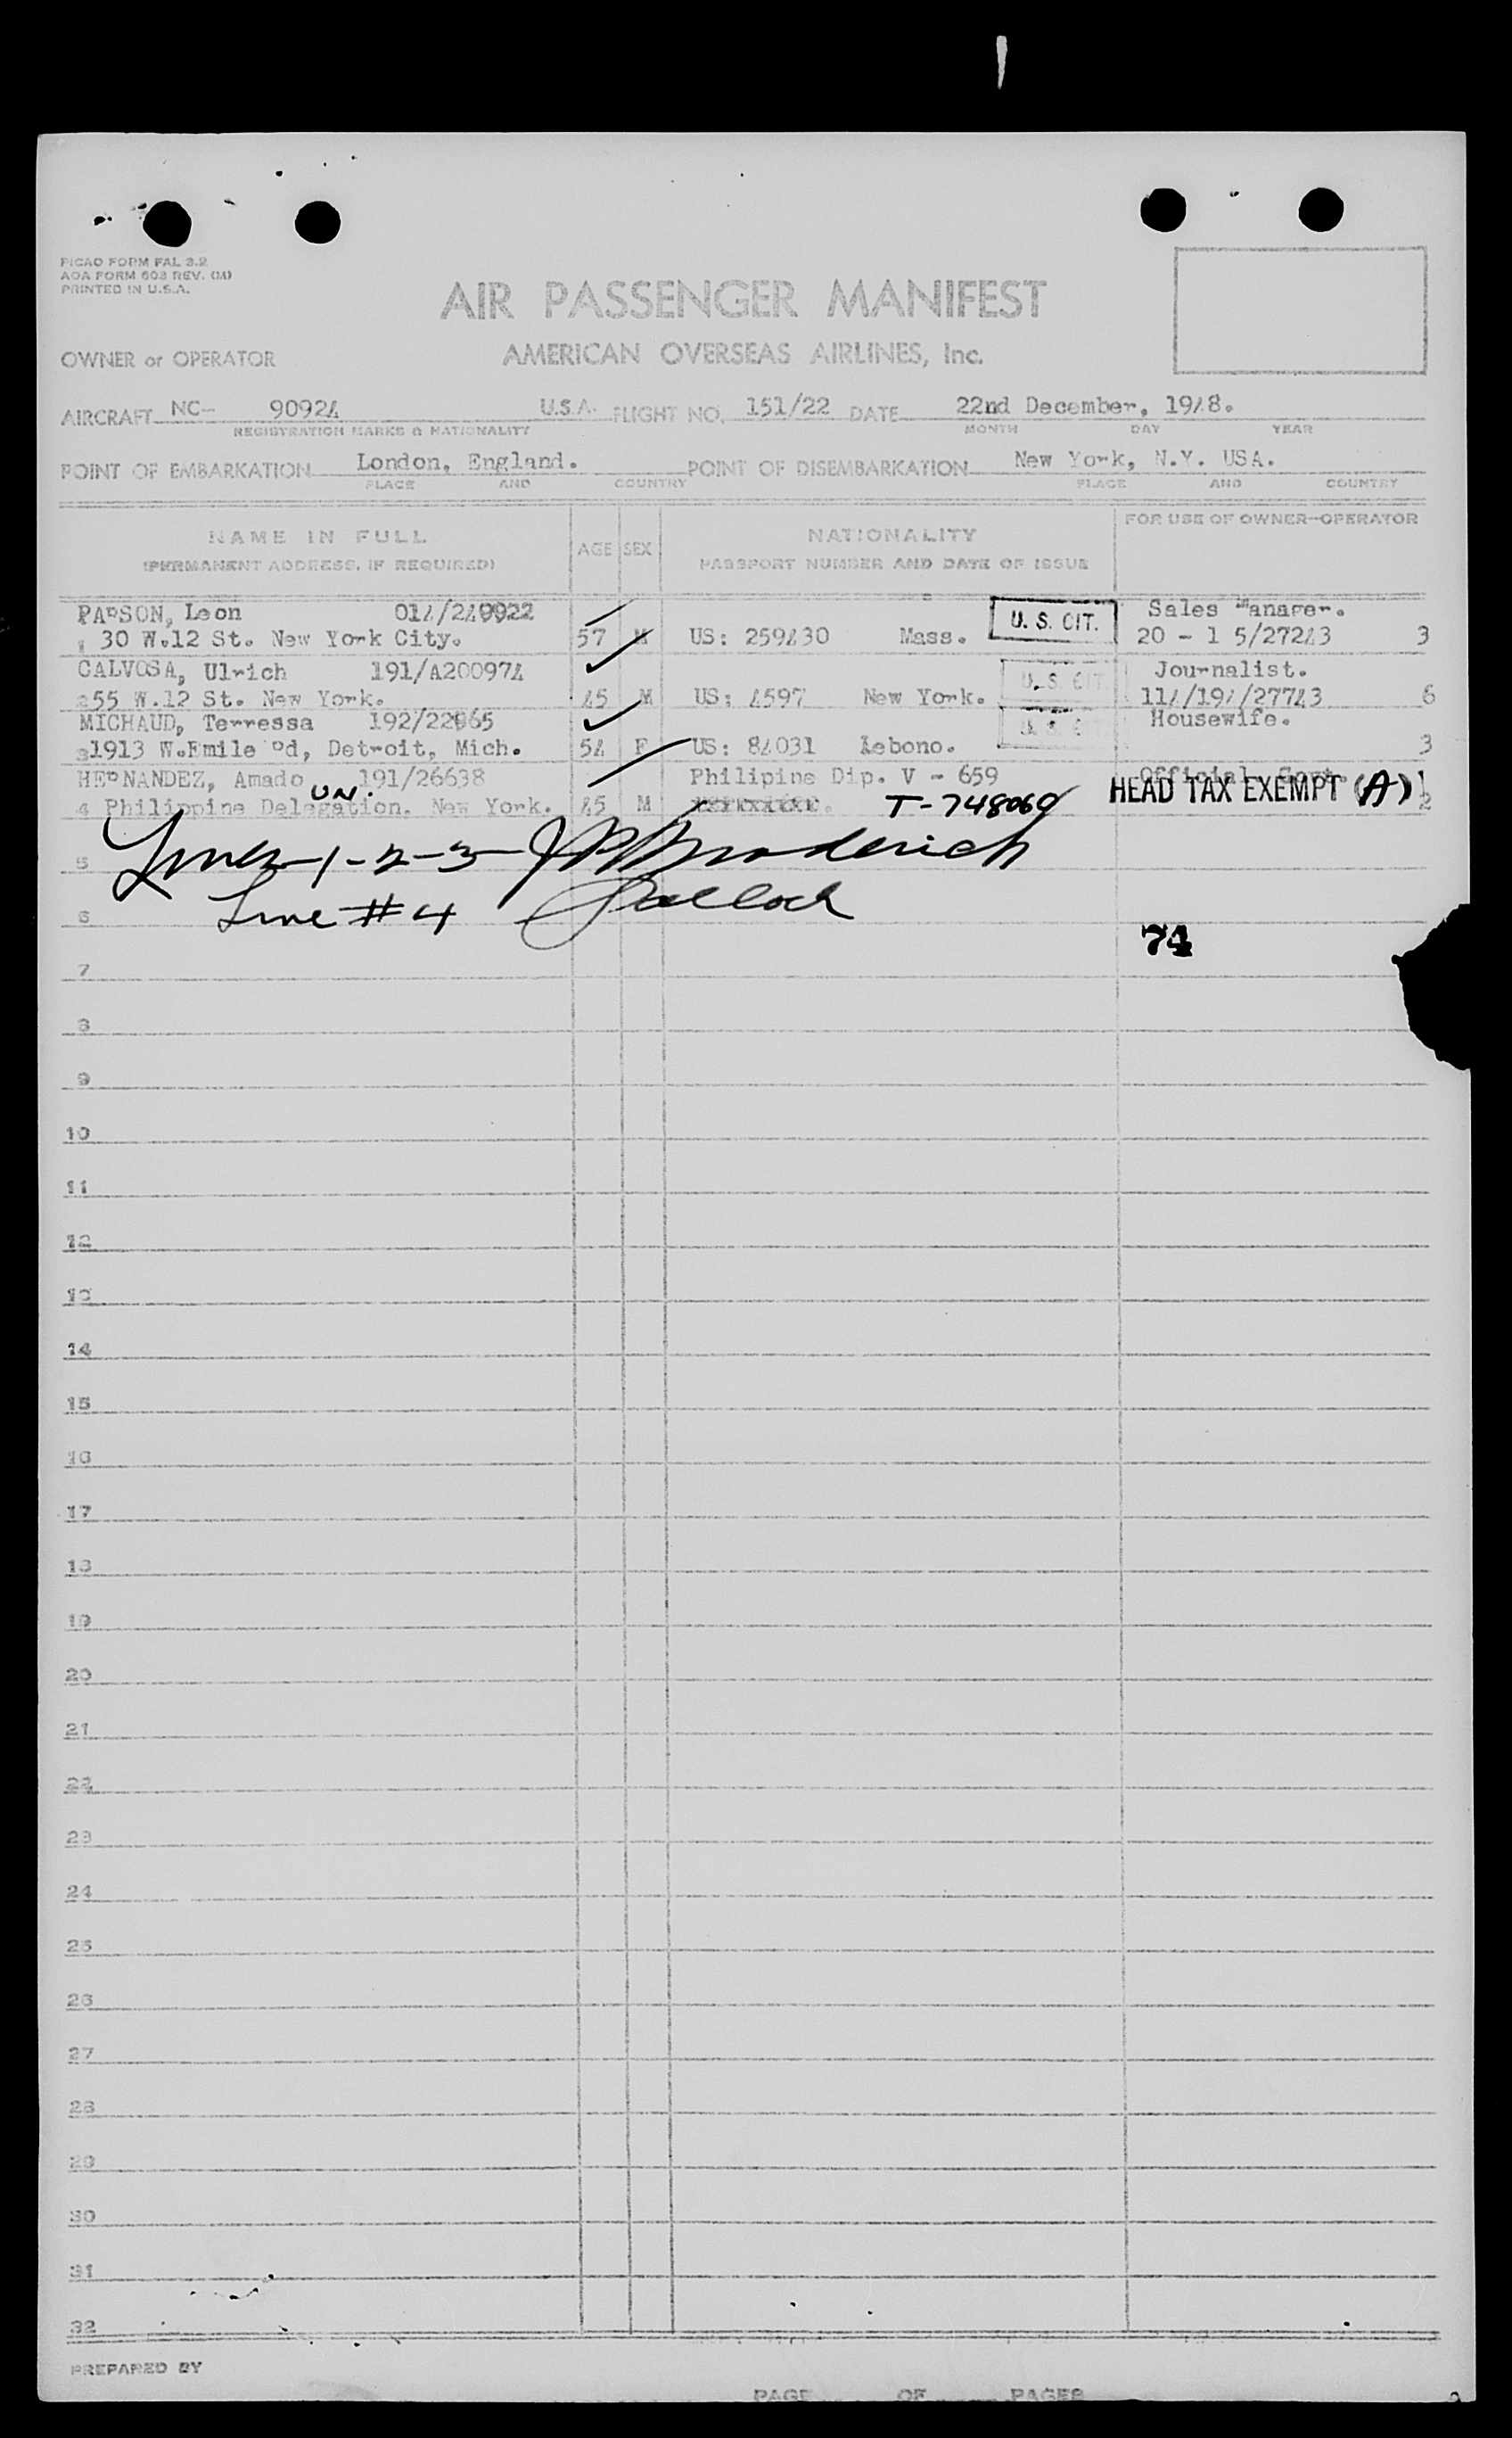 PICAO FORM FAL 3.2
AOA FORM 603 REV.
PRINTED IN U.S.A.
AIR PASSENGER MANIFEST
OWNER or OPERATOR AMERICAN OVERSEAS AIRLINES, Inc.
AIRCRAFT NC- 90924 U.S.A. FLIGHT NO. 151/22 DATE 22nd December, 1948.
REGISTRATION MARKS & NATIONALITY MONTH DAY YEAR
POINT OF EMBARKATION London, England. POINT OF DISEMBARKATION New York, N.Y. USA.
PLACE AND COUNTRY PLACE AND COUNTRY
NAME IN FULL AGE SEX NATIONALITY FOR USE OF OWNER-OPERATOR
(PERMANENT ADDRESS, IF REQUIRED) PASSPORT NUMBER AND DATE OF ISSUE
PARSON, Leon 014/249922 U. S. CIT. Sales Manager.
1 30 W.12 St. New York City. 57 M US: 259430 Mass. 20 - 1 5/27243 3
CALVOSA, Ulrich 191/A200974 U. S. CIT Journalist.
2 55 W.12 St. New York. 45 M US: 4597 New York. 114/194/27743 6
MICHAUD, Terressa 192/22965 U. S. C Housewife.
3 1913 W.Emile Rd, Detroit, Mich. 54 F US: 84031 Lebono. 3
HERNANDEZ, Amado 191/26638 Philipine Dip. V - 659 Official. Govt.
UN.
4 Philippine Delegation. New York. 45 M T-748060 HEAD TAX EXEMPT (A) 2
5 Lines-1-2-3- Broderick
6 Line #4 Pollock
74
7
8
9
10
11
12
13
14
15
16
17
18
19
20
21
22
23
24
25
26
27
28
29
30
31
32
PREPARED BY
PAGE OF PAGES